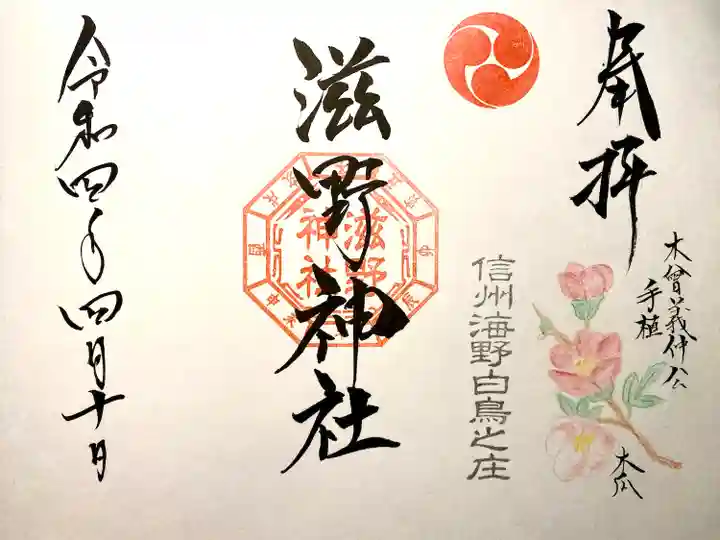 奉拝
木曾義仲公
手植
木瓜
信州海野白鳥之庄
滋野神社
滋野神社
令和四年四月十日